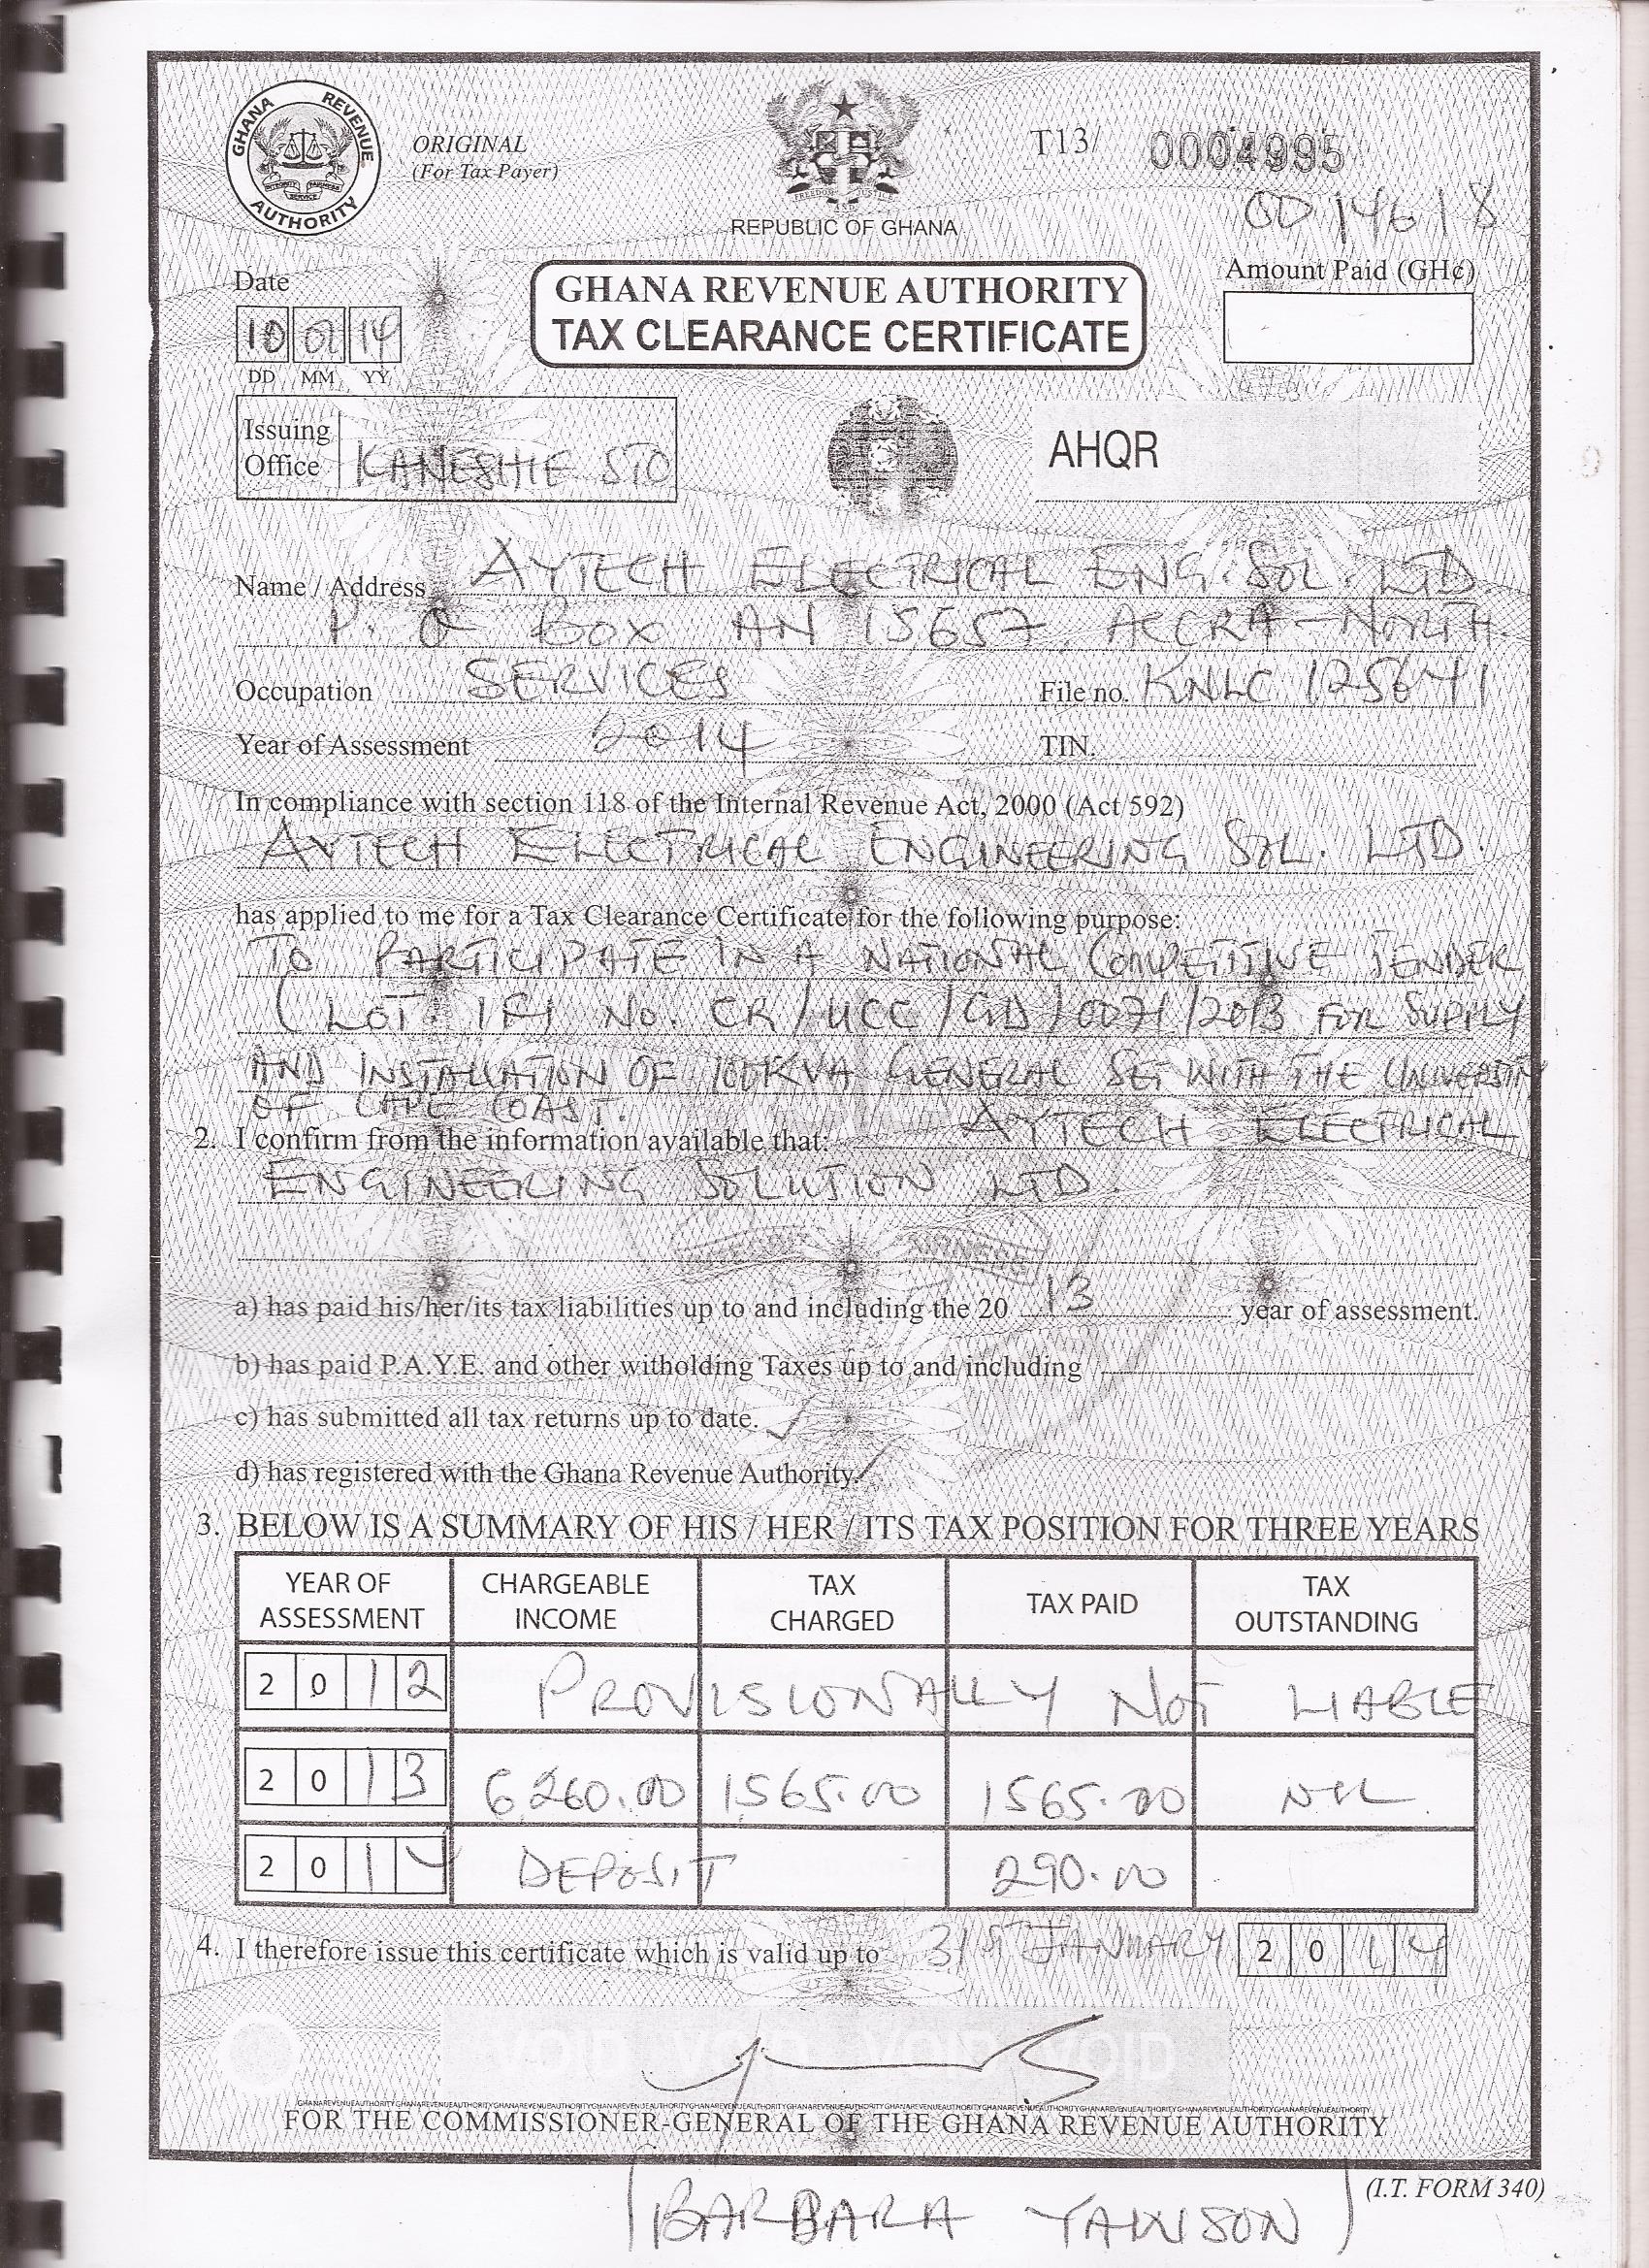 GHANA REVENUE AUTHORITY
INTEGRITY FAIRNESS SERVICE
ORIGINAL
(For Tax Payer)
FREEDOM AND JUSTICE
REPUBLIC OF GHANA
T13/ 0004995
0014618
Date
10 01 14
DD MM YY
GHANA REVENUE AUTHORITY
TAX CLEARANCE CERTIFICATE
Amount Paid (GH¢)
Issuing
Office KANESHIE STO
AHQR
Name / Address AYTECH ELECTRICAL ENG. SOL. LTD.
P. O BOX AN 15657, ACCRA-NORTH.
Occupation SERVICES File no. KNLC 125641
Year of Assessment 2014 TIN.
In compliance with section 118 of the Internal Revenue Act, 2000 (Act 592)
AYTECH ELECTRICAL ENGINEERING SOL. LTD.
has applied to me for a Tax Clearance Certificate for the following purpose:
TO PARTICIPATE IN A NATIONAL COMPETITIVE TENDER
(LOT. 1F1 No. CR/UCC/GD/0071/2013 FOR SUPPLY
AND INSTALLATION OF 100KVA GENERAL SET WITH THE UNIVERSITY
OF CAPE COAST.
2. I confirm from the information available that: AYTECH ELECTRICAL
ENGINEERING SOLUTION LTD.
a) has paid his/her/its tax liabilities up to and including the 20 13 year of assessment.
b) has paid P.A.Y.E. and other witholding Taxes up to and including
c) has submitted all tax returns up to date. ✓
d) has registered with the Ghana Revenue Authority. ✓
3. BELOW IS A SUMMARY OF HIS / HER / ITS TAX POSITION FOR THREE YEARS
YEAR OF ASSESSMENT CHARGEABLE INCOME TAX CHARGED TAX PAID TAX OUTSTANDING
2012 PROVISIONALLY NOT LIABLE
2013 6260.00 1565.00 1565.00 NIL.
2014 DEPOSIT 290.00
4. I therefore issue this certificate which is valid up to 31ST JANUARY 2014
VOID VOID VOID VOID
FOR THE COMMISSIONER-GENERAL OF THE GHANA REVENUE AUTHORITY
(I.T. FORM 340)
(BARBARA YAWSON)